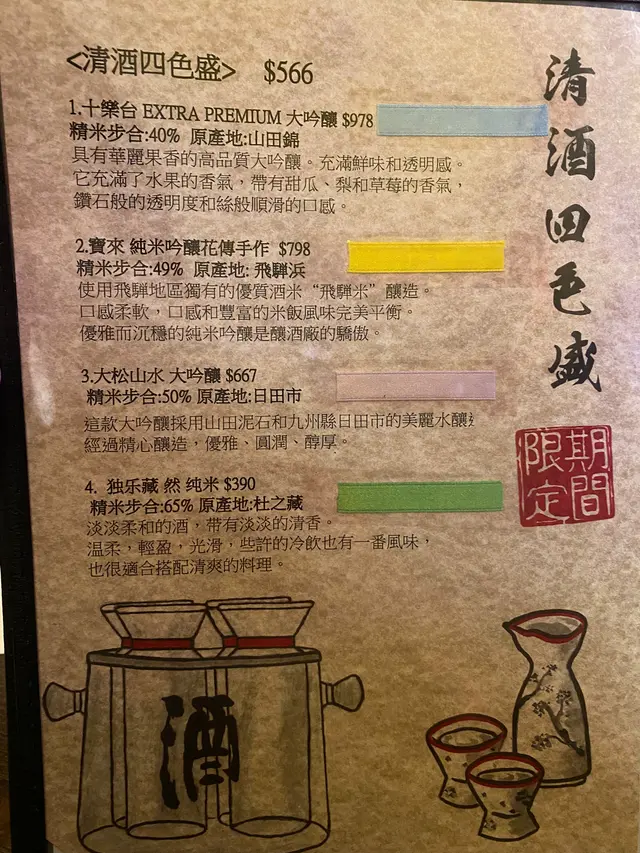 <清酒四色盛> $566
1.十樂台 EXTRA PREMIUM 大吟釀 $978
精米步合:40% 原產地:山田錦
具有華麗果香的高品質大吟釀。充滿鮮味和透明感。
它充滿了水果的香氣，帶有甜瓜、梨和草莓的香氣，
鑽石般的透明度和絲般順滑的口感。
2.寶來 純米吟釀花傳手作 $798
精米步合:49% 原產地: 飛騨浜
使用飛騨地區獨有的優質酒米“飛騨米”釀造。
口感柔軟，口感和豐富的米飯風味完美平衡。
優雅而沉穩的純米吟釀是釀酒廠的驕傲。
3.大松山水 大吟釀 $667
精米步合:50% 原產地:日田市
這款大吟釀採用山田泥石和九州縣日田市的美麗水釀
經過精心釀造，優雅、圓潤、醇厚。
4. 独乐藏 然 純米 $390
精米步合:65% 原產地:杜之藏
淡淡柔和的酒，帶有淡淡的清香。
温柔，輕盈，光滑，些許的冷飲也有一番風味，
也很適合搭配清爽的料理。
清酒四色盛
期間限定
酒